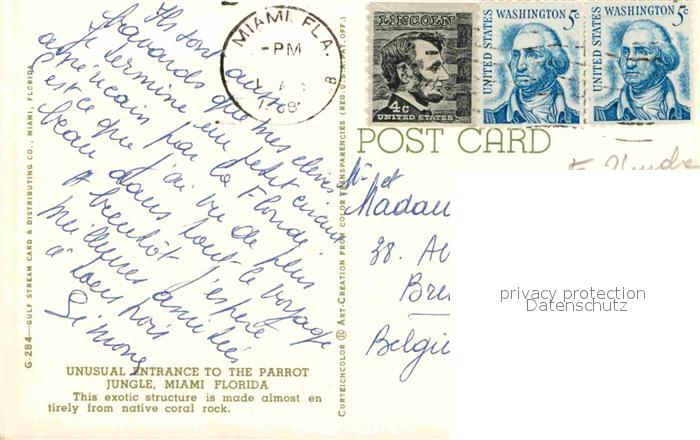 MIAMI, FLA.
-PM
1968
LINCOLN
4c
UNITED STATES
WASHINGTON 5c
UNITED STATES
WASHINGTON 5c
UNITED STATES
POST CARD
Ils sont aussi
bavards que mes élèves
Je termine un petit circuit
américain par la Floride
C'est ce que j'ai vu de plus
beau dans tout le voyage
A bientôt j'espère
Meilleures amitiés
à tous trois
Simone
G-284—GULF STREAM CARD & DISTRIBUTING CO., MIAMI, FLORIDA
CURTEICHCOLOR ® ART-CREATION FROM COLOR TRANSPARENCIES (REG. U.S.A. PAT. OFF.)
UNUSUAL ENTRANCE TO THE PARROT
JUNGLE, MIAMI FLORIDA
This exotic structure is made almost en
tirely from native coral rock.
et
Madam
38. A
Bre
Belgi
privacy protection
Datenschutz